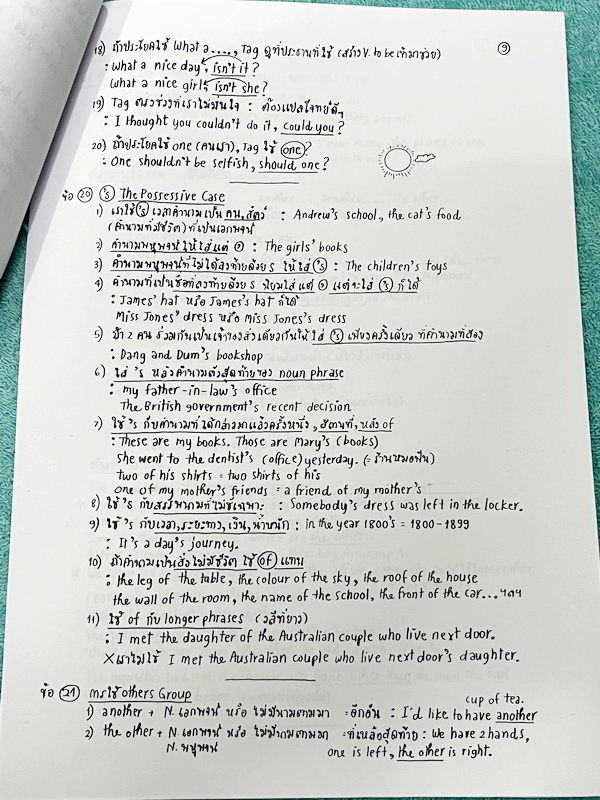 9
18) ถ้าประโยคใช้ What a ...., Tag ดูที่ประธานที่ใช้ (สร้าง V. to be เข้ามาช่วย)
: What a nice day, isn't it?
What a nice girl, isn't she?
19) Tag ตรงช่วงที่เราไม่มั่นใจ : ต้องแปลโจทย์ดีๆ
: I thought you couldn't do it, could you?
20) ถ้าประโยคใช้ one (คนเรา), Tag ใช้ one?
: One shouldn't be selfish, should one?
ข้อ 20 's The Possessive Case
1) เราใช้ 's เวลาคำนามเป็น คน, สัตว์ : Andrew's school, the cat's food
(คำนามที่มีชีวิต) ที่เป็นเอกพจน์
2) คำนามพหูพจน์ให้ใส่แค่ ' : The girls' books
3) คำนามพหูพจน์ที่ไม่ได้ลงท้ายด้วย s ให้ใส่ 's : The children's toys
4) คำนามที่เป็นชื่อที่ลงท้ายด้วย s นิยมใส่แค่ ' แต่จะใส่ 's ก็ได้
: James' hat หรือ James's hat ก็ได้
Miss Jones' dress หรือ Miss Jones's dress
5) ถ้า 2 คน ร่วมกันเป็นเจ้าของสิ่งเดียวกันให้ใส่ 's เพียงครั้งเดียว ที่คำนามที่สอง
: Dang and Dum's bookshop
6) ใส่ 's หลังคำนามตัวสุดท้ายของ noun phrase
: my father-in-law's office
The British government's recent decision
7) ใช้ 's กับคำนามที่ได้กล่าวมาแล้วครั้งหนึ่ง, สถานที่, หลัง of
: These are my books. Those are Mary's (books)
She went to the dentist's (office) yesterday. (= ร้านหมอฟัน)
two of his shirts = two shirts of his
one of my mother's friends = a friend of my mother's
8) ใช้ 's กับสรรพนามที่ไม่ชี้เฉพาะ : Somebody's dress was left in the locker.
9) ใช้ 's กับเวลา, ระยะทาง, เงิน, น้ำหนัก : in the year 1800's = 1800-1899
: It's a day's journey.
10) ถ้าคำนามเป็นสิ่งไม่มีชีวิต ใช้ of แทน
: the leg of the table, the colour of the sky, the roof of the house
the wall of the room, the name of the school, the front of the car... ฯลฯ
11) ใช้ of กับ longer phrases (วลีที่ยาว)
: I met the daughter of the Australian couple who live next door.
X เราไม่ใช้ I met the Australian couple who live next door's daughter.
ข้อ 21 การใช้ others Group
cup of tea.
1) another + N. เอกพจน์ หรือ ไม่มีนามตามมา = อีกอัน : I'd like to have another
2) the other + N. เอกพจน์ หรือ ไม่มีนามตามมา = ที่เหลือสุดท้าย : We have 2 hands,
N. พหูพจน์ one is left, the other is right.